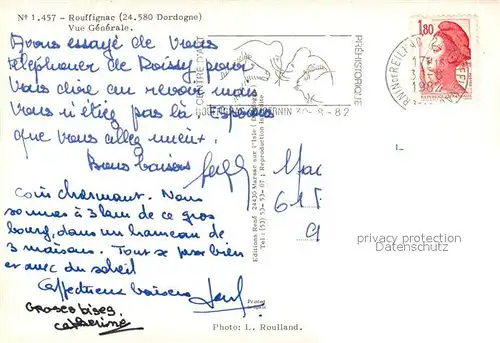 Nº 1.457 - Rouffignac (24.580 Dordogne)
Vue Générale.
Avons essayé de vous
téléphoner de Roissy pour
vous dire au revoir mais
vous n'étiez pas là. Espérons
que vous allez mieux.
Bons baisers
Coin charmant. Nous
sommes à 3 km de ce gros
bourg, dans un hameau de
3 maisons. Tout se passe bien
et avec du soleil
Affectueux baisers
Grosses bises.
Catherine
CENTRE D'ART
PRÉHISTORIQUE
30-8-82
1,80
1982
Editions René
24430 Marsac sur l'Isle
Tel : (53) 53-53-07 : Reproduction
Photo: L. Roulland.
privacy protection
Datenschutz